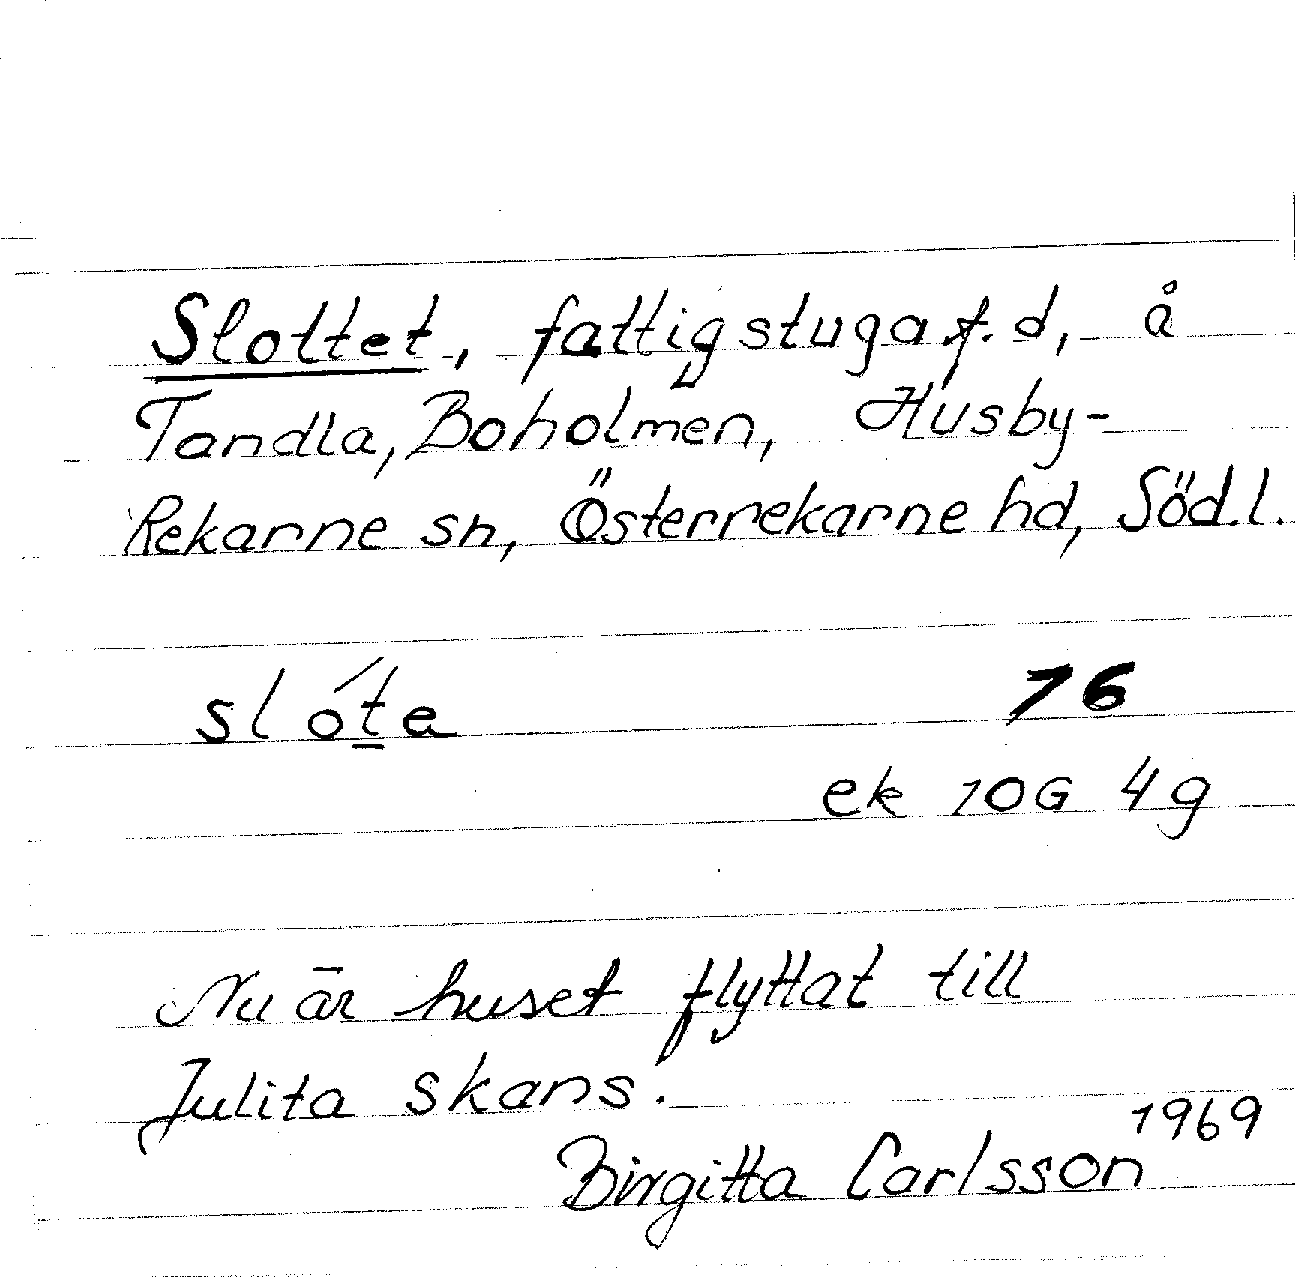 Slottet, fattigstuga f.d, å
Tandla, Boholmen, Husby-
Rekarne sn, Österrekarne hd, Södl.
slóte
76
ek 10G 4g
Nu är huset flyttat till
Julita skans.
1969
Birgitta Carlsson